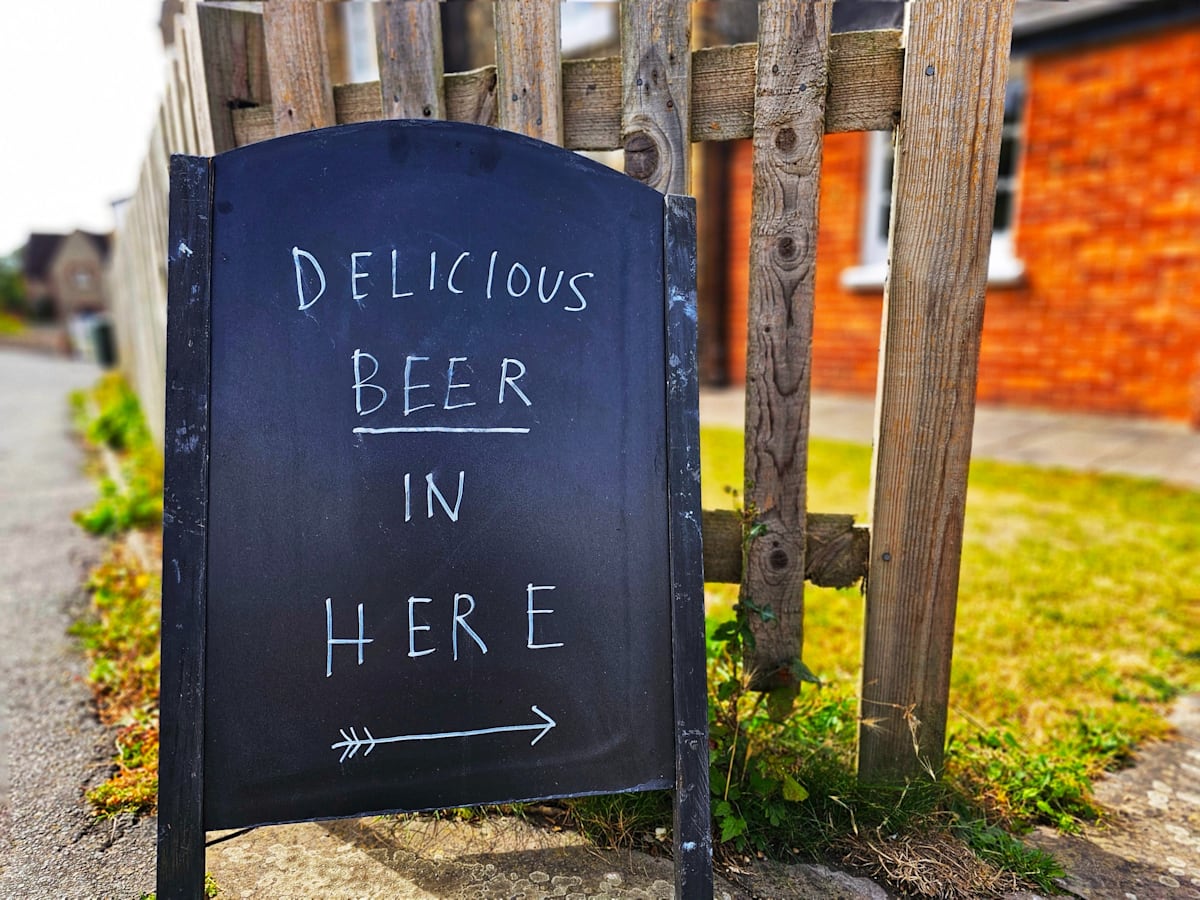 DELICIOUS
BEER
IN
HERE